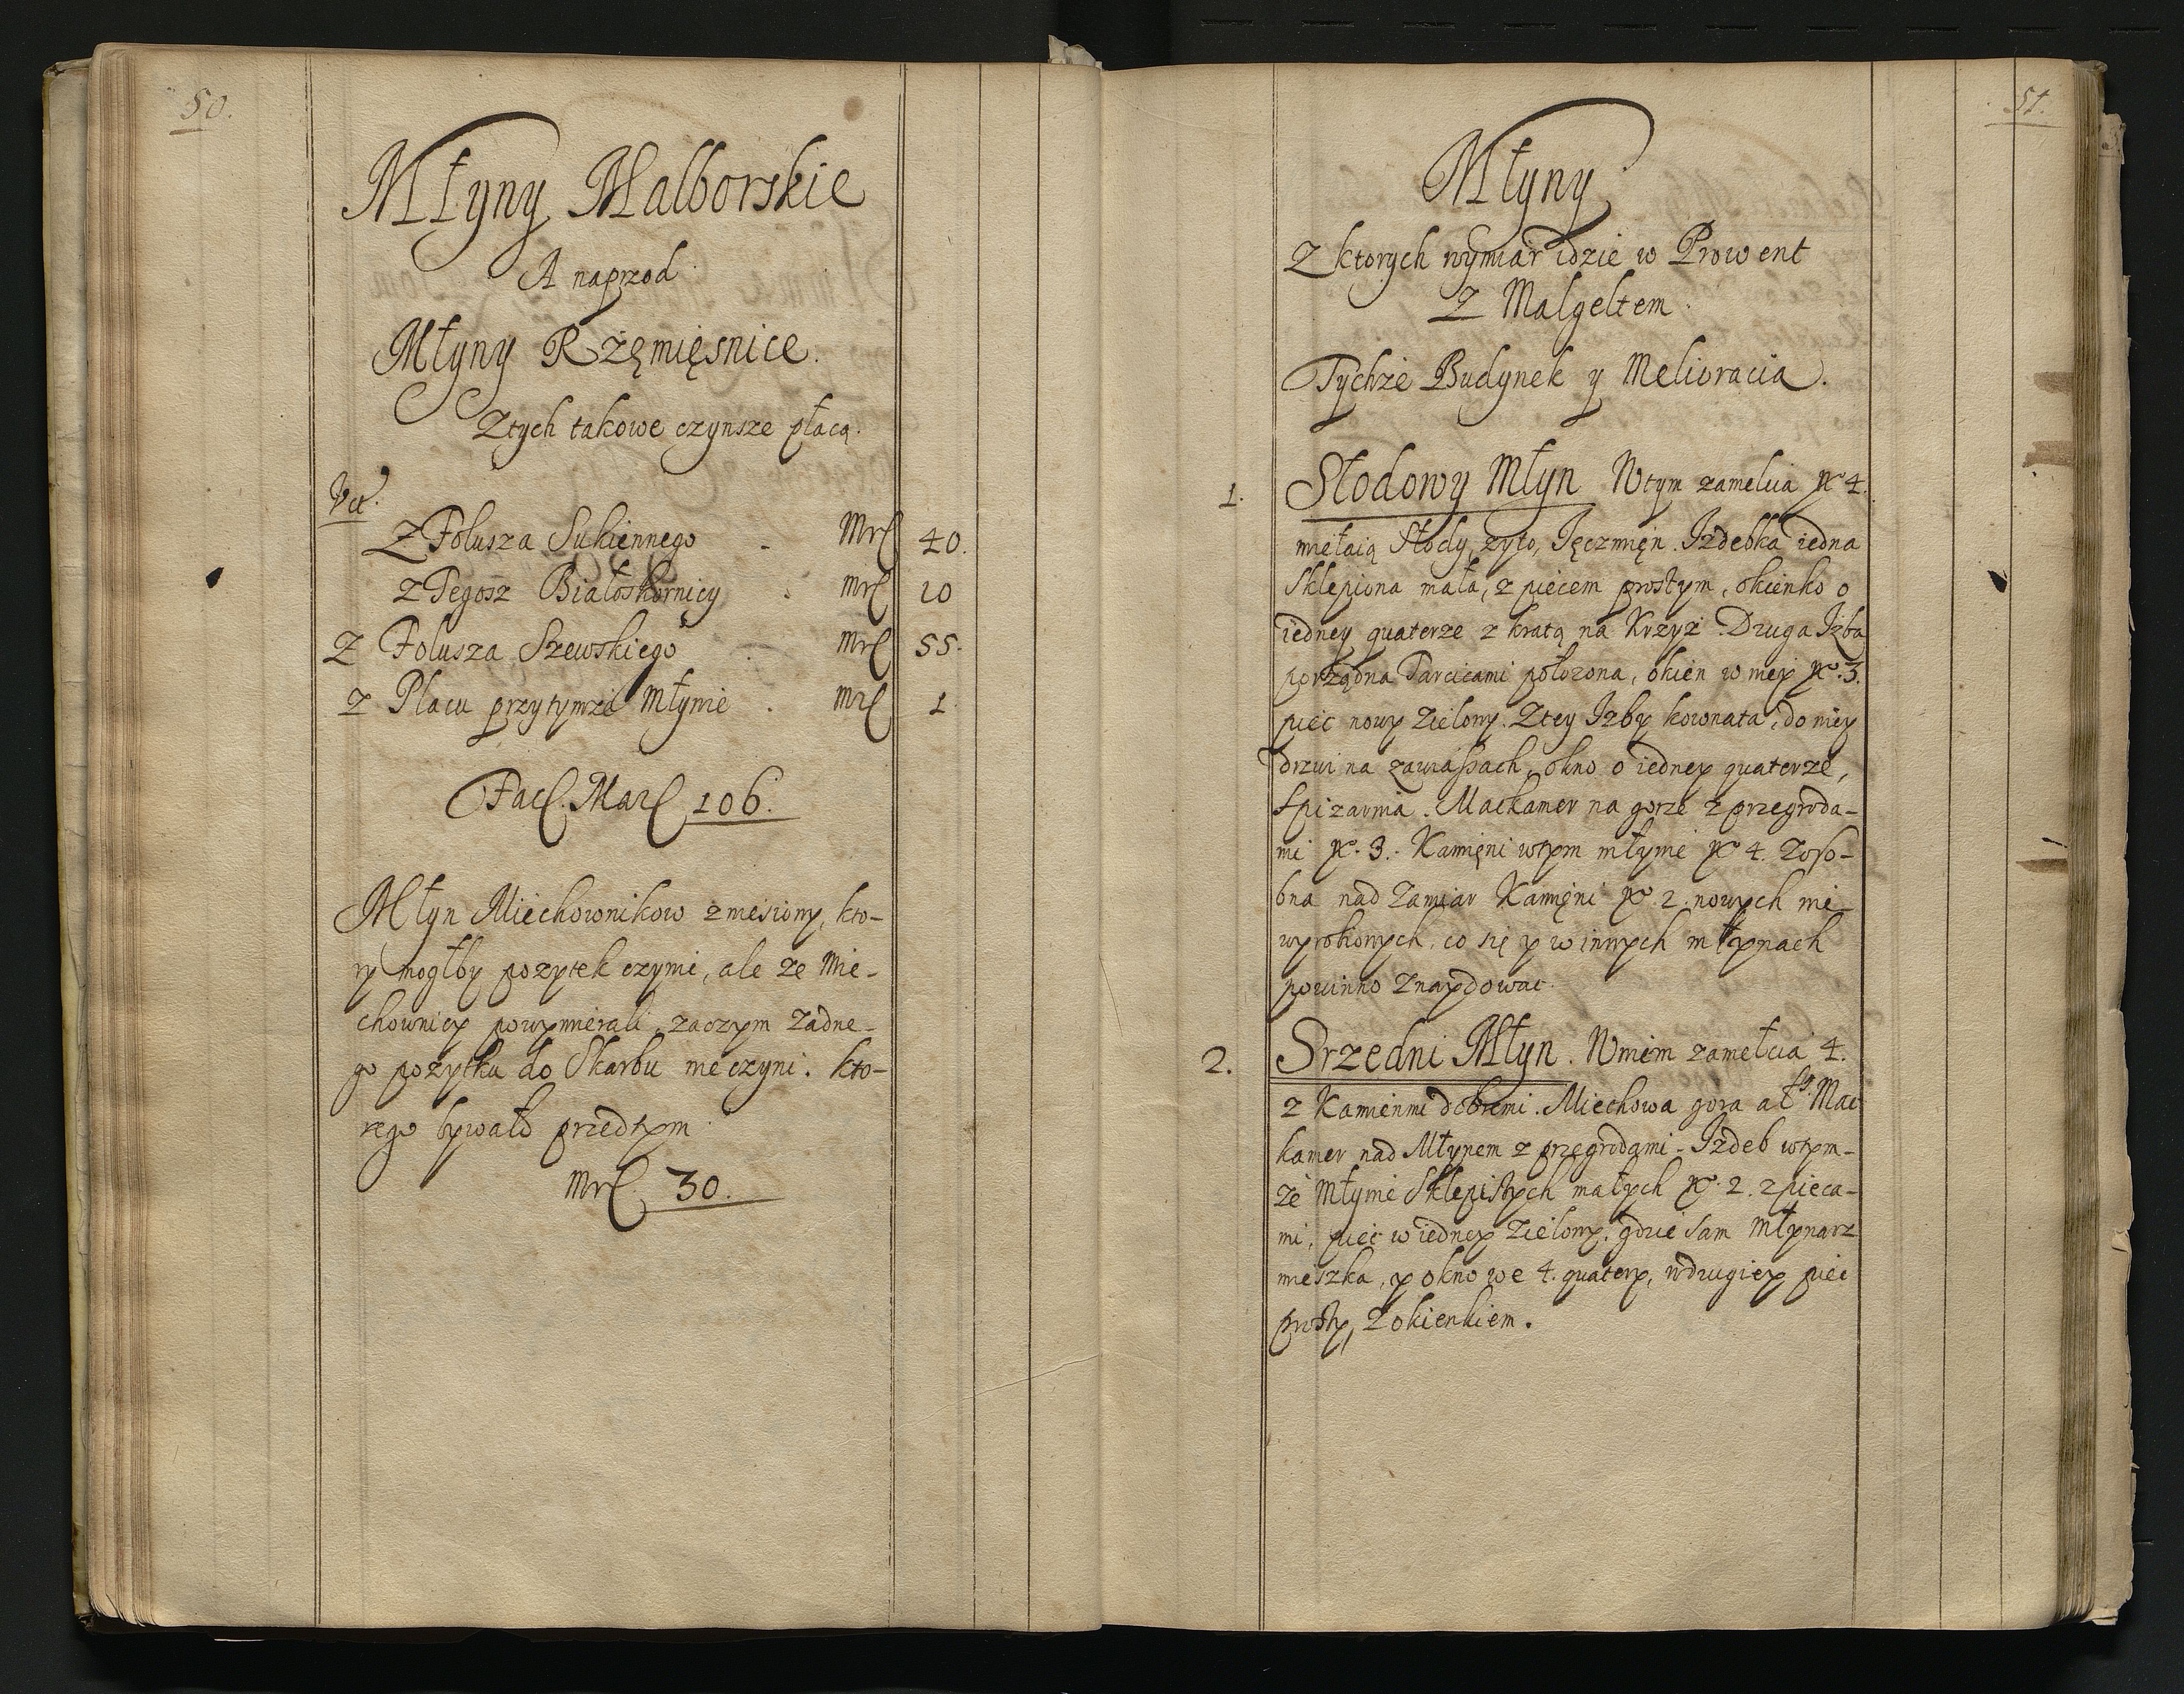 50.
Młyny Malborskie
A naprzod
Młyny Rzęmięsnice.
Ztych takowe czynsze płacą.
Vt
Z Folusza Sukiennego - Mrc 40.
z Tegosz Białoskornicy . Mrc 10
Z Folusza Szewskiego . Mrc 55.
z Placu przytymze Młynie . Mrc 1.
Fac. Marc 106.
Młyn Miechownikow zniesiony, kto-
ry mogłby pozytek czynic, ale ze Mie-
chownicy powymierali, zaczym zadne-
go pozytku do Skarbu nieczyni. kto-
rego bywało przedtym
Mrc 30.
51.
Młyny
Z ktorych wymiar idzie w Prowent
Z Malgeltem.
Tychże Budynek y Melioracia.
1. Słodowy Młyn Wtym zamelcia No 4.
mełaią Słody, zyto, Ięczmięn. Izdebka iedna
Sklepiona mała, z piecem prostym, okienko o
iedney quaterze z kratą na Krzyż. Druga Izba
porządna Tarcicami położona, okien w niey No. 3.
piec nowy Zielony. Ztey Izby kownata, do niey
drzwi na zawiassach, okno o iedney quaterze,
Spizarnia. Mackamer na gorze z przegroda-
mi No. 3. Kamięni wtym młynie No 4. Zoso-
bna nad Zamiar Kamięni No. 2. nowych nie
wyrobionych, co się y w innych młynach
powinno znaydowac.
2. Srzedni Młyn. Wnim zamełcia 4.
z Kamienmi dobremi. Miechowa gora ał Mac
kamer nad Młynem z przegrodami. Izdeb wtym-
ze Młynie Sklepistych małych No. 2. z pieca-
mi, piec w iedney Zielony, gdzie sam Młynarz
mieszka, y okno we 4. quatery, wdrugiey piec
prosty, Zokienkiem.